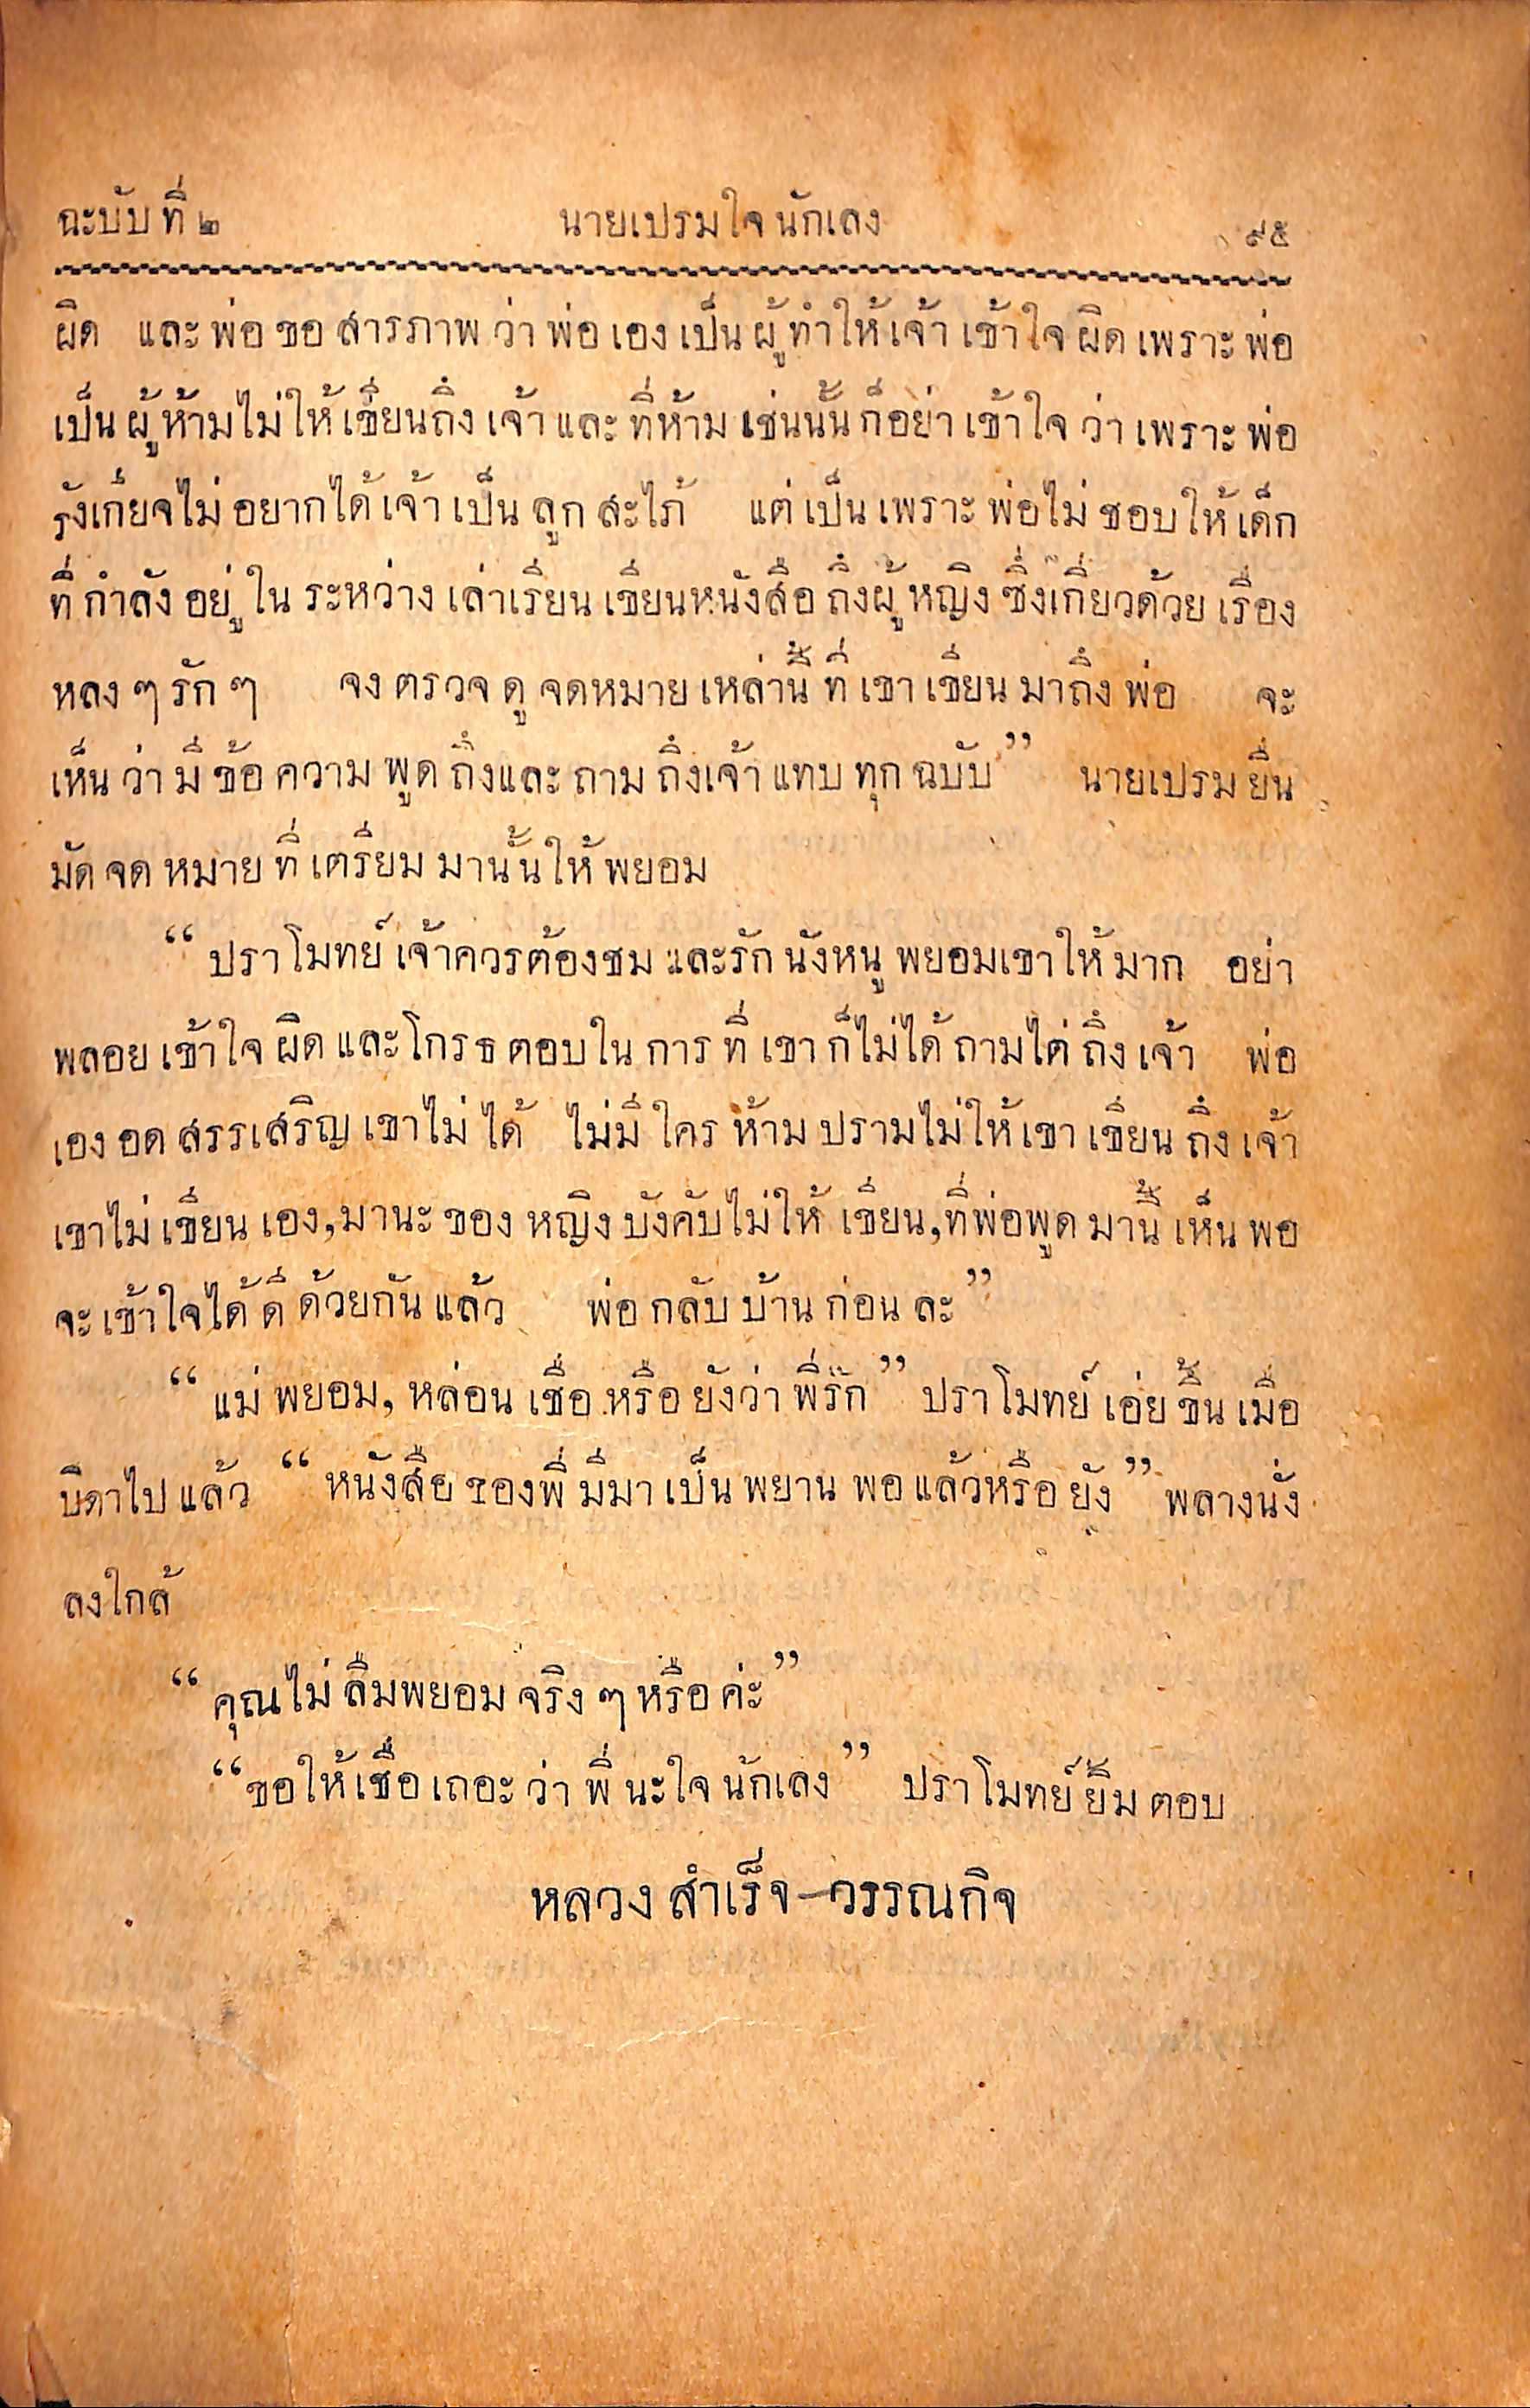 ฉะบับที่ ๒ นายเปรมใจนักเลง ๙๕
ผิด และพ่อขอสารภาพว่าพ่อเองเป็นผู้ทำให้เจ้าเข้าใจผิดเพราะพ่อ
เป็นผู้ห้ามไม่ให้เขียนถึงเจ้าและที่ห้ามเช่นนั้นก็อย่าเข้าใจว่าเพราะพ่อ
รังเกียจไม่อยากได้เจ้าเป็นลูกสะไภ้ แต่เป็นเพราะพ่อไม่ชอบให้เด็ก
ที่กำลังอยู่ในระหว่างเล่าเรียนเขียนหนังสือถึงผู้หญิงซึ่งเกี่ยวด้วยเรื่อง
หลงๆรักๆ จงตรวจดูจดหมายเหล่านี้ที่เขาเขียนมาถึงพ่อ จะ
เห็นว่ามีข้อความพูดถึงและถามถึงเจ้าแทบทุกฉบับ” นายเปรมยื่น
มัดจดหมายที่เตรียมมานั้นให้พยอม
“ปราโมทย์เจ้าควรต้องชมและรักนังหนูพยอมเขาให้มาก อย่า
พลอยเข้าใจผิดและโกรธตอบในการที่เขาก็ไม่ได้ถามไต่ถึงเจ้า พ่อ
เองอดสรรเสริญเขาไม่ได้ ไม่มีใครห้ามปรามไม่ให้เขาเขียนถึงเจ้า
เขาไม่เขียนเอง,มานะของหญิงบังคับไม่ให้เขียน,ที่พ่อพูดมานี้เห็นพอ
จะเข้าใจได้ดีด้วยกันแล้ว พ่อกลับบ้านก่อนละ”
“แม่พยอม, หล่อนเชื่อหรือยังว่าพี่รัก” ปราโมทย์เอ่ยขึ้นเมื่อ
บิดาไปแล้ว “หนังสือของพี่มีมาเป็นพยานพอแล้วหรือยัง” พลางนั่ง
ลงใกล้
“คุณไม่ลืมพยอมจริงๆหรือค่ะ”
“ขอให้เชื่อเถอะว่าพี่นะใจนักเลง” ปราโมทย์ยิ้มตอบ
หลวงสำเร็จ—วรรณกิจ